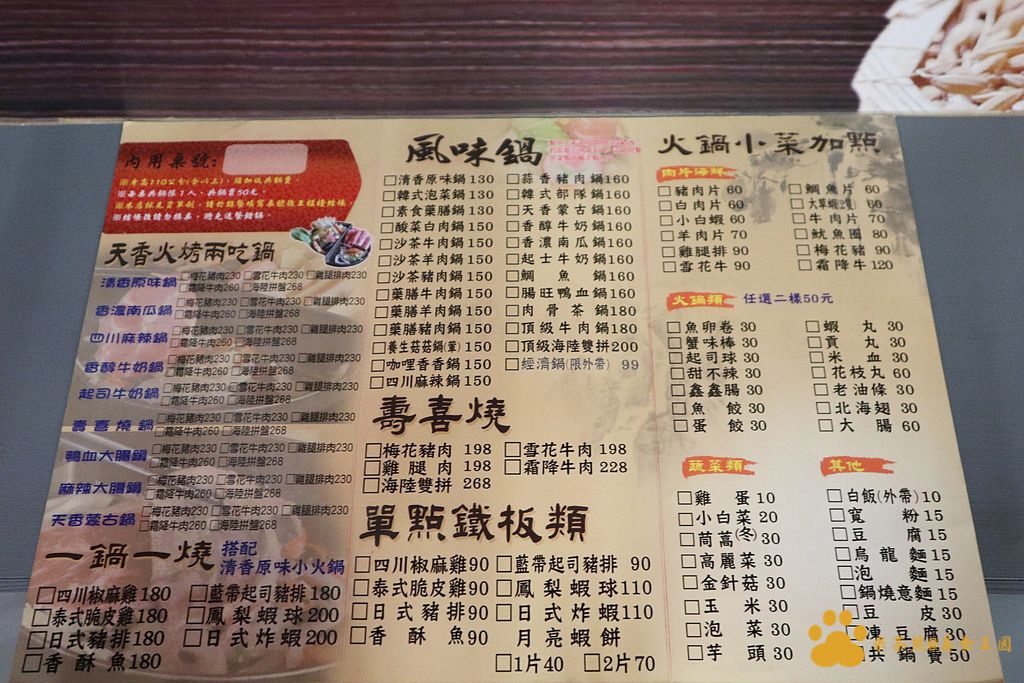 內用桌號:
※身高110公分(含以上), 須加收共鍋費。
※每桌共鍋限1人, 共鍋費50元。
※結帳後請勿換桌, 避免送餐錯誤。
天香火烤兩吃鍋
清香原味鍋 □梅花豬肉230 □雪花牛肉230 □雞腿排肉230
□霜降牛肉260 □海陸拼盤268
香濃南瓜鍋 □梅花豬肉230 □雪花牛肉230 □雞腿排肉230
□霜降牛肉260 □海陸拼盤268
四川麻辣鍋 □梅花豬肉230 □雪花牛肉230 □雞腿排肉230
□霜降牛肉260 □海陸拼盤268
香醇牛奶鍋 □梅花豬肉230 □雪花牛肉230 □雞腿排肉230
□霜降牛肉260 □海陸拼盤268
起司牛奶鍋 □梅花豬肉230 □雪花牛肉230 □雞腿排肉230
□霜降牛肉260 □海陸拼盤268
壽喜燒鍋 □梅花豬肉230 □雪花牛肉230 □雞腿排肉230
□霜降牛肉260 □海陸拼盤268
鴨血大腸鍋 □梅花豬肉230 □雪花牛肉230 □雞腿排肉230
□霜降牛肉260 □海陸拼盤268
麻辣大腸鍋 □梅花豬肉230 □雪花牛肉230 □雞腿排肉230
□霜降牛肉260 □海陸拼盤268
天香蒙古鍋 □梅花豬肉230 □雪花牛肉230 □雞腿排肉230
□霜降牛肉260 □海陸拼盤268
一鍋一燒 搭配
清香原味小火鍋
□四川椒麻雞180 □藍帶起司豬排180
□泰式脆皮雞180 □鳳梨蝦球200
□日式豬排180 □日式炸蝦200
□香酥魚180
風味鍋
□清香原味鍋130 □蒜香豬肉鍋160
□韓式泡菜鍋130 □韓式部隊鍋160
□素食藥膳鍋130 □天香蒙古鍋160
□酸菜白肉鍋150 □香醇牛奶鍋160
□沙茶牛肉鍋150 □香濃南瓜鍋160
□沙茶羊肉鍋150 □起士牛奶鍋160
□沙茶豬肉鍋150 □鯛魚鍋160
□藥膳牛肉鍋150 □腸旺鴨血鍋160
□藥膳羊肉鍋150 □肉骨茶鍋180
□藥膳豬肉鍋150 □頂級牛肉鍋180
□養生菇菇鍋(葷)150 □頂級海陸雙拼200
□咖哩香香鍋150 □經濟鍋(限外帶) 99
□四川麻辣鍋150
壽喜燒
□梅花豬肉 198 □雪花牛肉 198
□雞腿肉 198 □霜降牛肉 228
□海陸雙拼 268
單點鐵板類
□四川椒麻雞90 □藍帶起司豬排 90
□泰式脆皮雞90 □鳳梨蝦球110
□日式豬排90 □日式炸蝦110
□香酥魚90 月亮蝦餅
□1片40 □2片70
火鍋小菜加點
肉片海鮮
□豬肉片 60 □鯛魚片 60
□白肉片 60 □大草蝦(2隻) 60
□小白蝦 60 □牛肉片 70
□羊肉片 70 □魷魚圈 80
□雞腿排 90 □梅花豬 90
□雪花牛 90 □霜降牛120
火鍋類 任選二樣50元
□魚卵卷 30 □蝦丸 30
□蟹味棒 30 □貢丸 30
□起司球 30 □米血 30
□甜不辣 30 □花枝丸 60
□鑫鑫腸 30 □老油條 30
□魚餃 30 □北海翅 30
□蛋餃 30 □大腸 60
蔬菜類
□雞蛋 10
□小白菜 20
□茼萵(冬) 30
□高麗菜 30
□金針菇 30
□玉米 30
□泡菜 30
□芋頭 30
其他
□白飯(外帶)10
□寬粉 15
□豆腐 15
□烏龍麵 15
□泡麵 15
□鍋燒意麵 15
□豆皮 30
□凍豆腐 30
□共鍋費 50